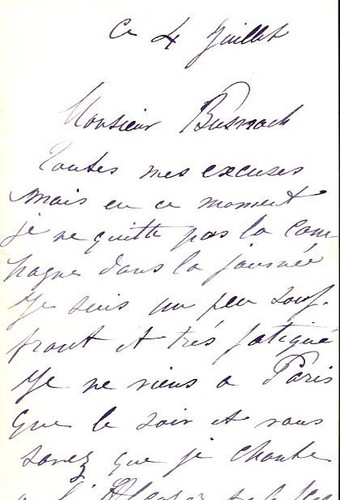 Ce 4 Juillet
Monsieur Busnach
Toutes mes excuses
mais en ce moment
je ne quitte pas la cam-
pagne dans la journée
Je suis un peu souf-
frant et très fatigué
Je ne viens a Paris
que le soir et vous
savez que je chante